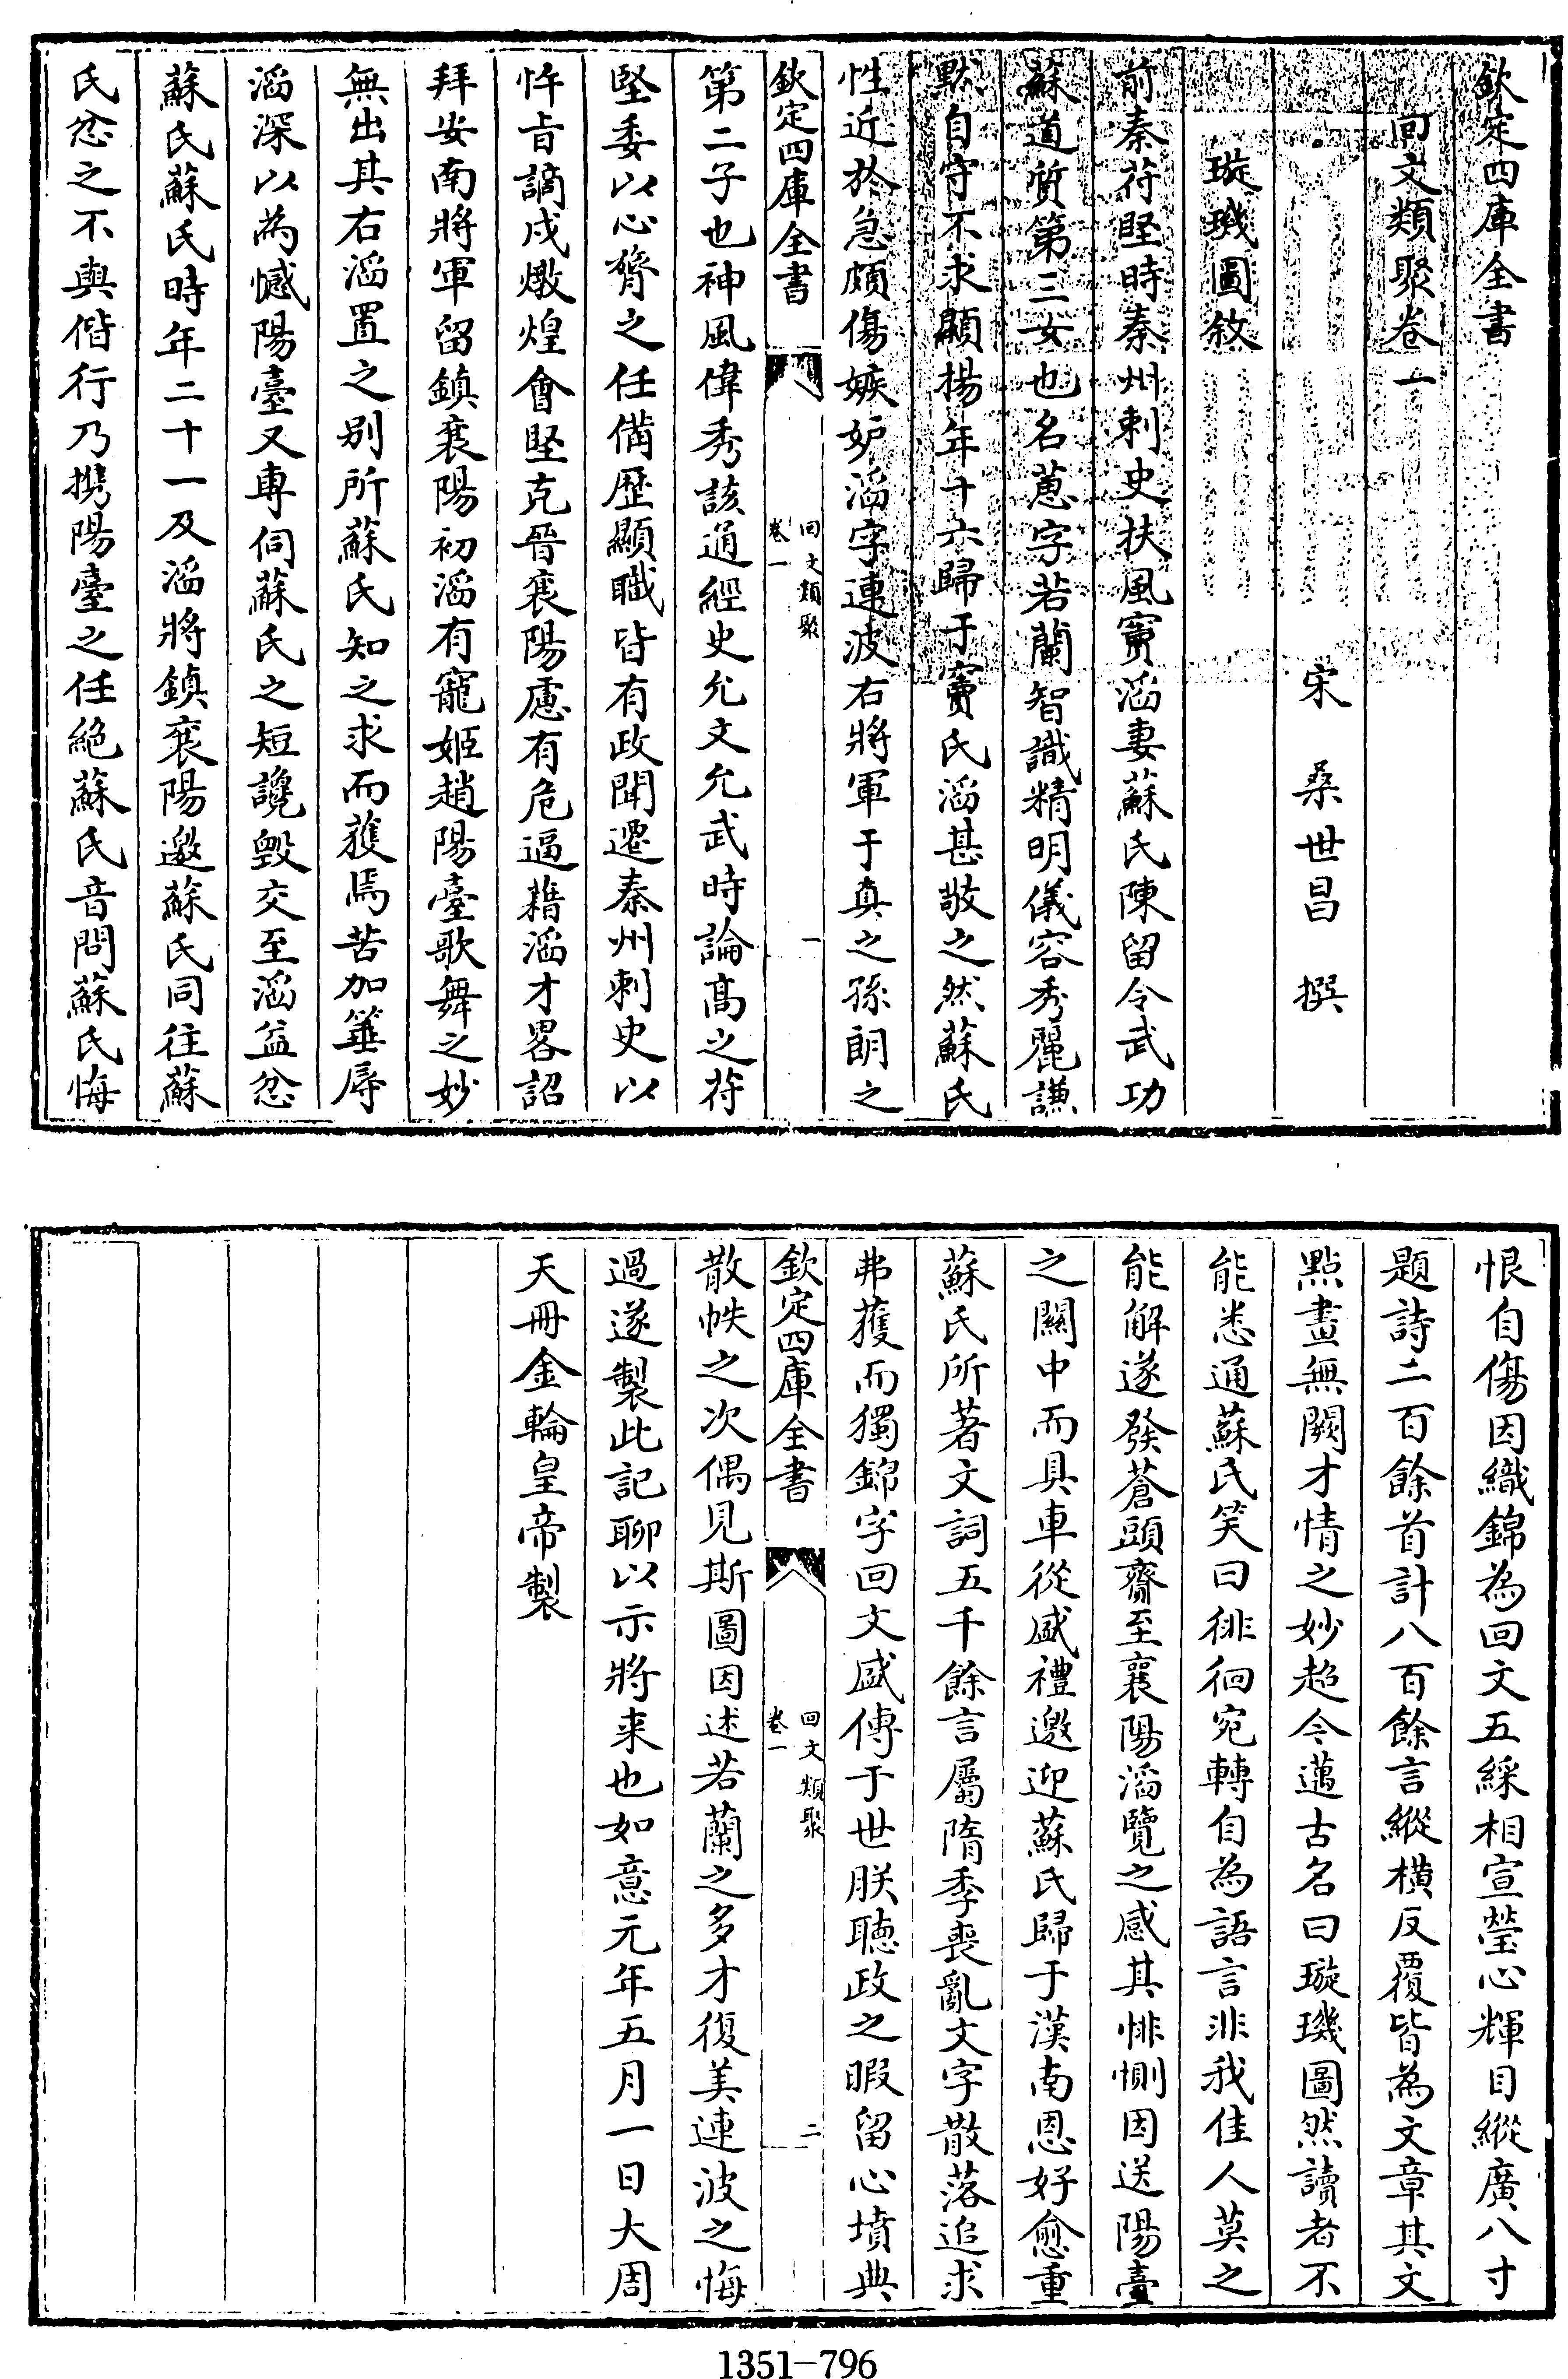 欽定四庫全書
回文類聚卷一
宋 桑世昌 撰
璇璣圖敘
前秦苻堅時秦州刺史扶風竇滔妻蘇氏陳留令武功
蘇道質第三女也名蕙字若蘭智識精明儀容秀麗謙
默自守不求顯揚年十六歸于竇氏滔甚敬之然蘇氏
性近於急頗傷嫉妒滔字連波右將軍于真之孫朗之
欽定四庫全書
回文類聚
卷一
一
第二子也神風偉秀該通經史允文允武時論高之苻
堅委以心膂之任備歷顯職皆有政聞遷秦州刺史以
忤旨謫戍燉煌會堅克晉襄陽慮有危逼藉滔才畧詔
拜安南將軍留鎮襄陽初滔有寵姬趙陽臺歌舞之妙
無出其右滔置之别所蘇氏知之求而獲焉苦加箠辱
滔深以為憾陽臺又專伺蘇氏之短讒毀交至滔益忿
蘇氏蘇氏時年二十一及滔將鎮襄陽邀蘇氏同往蘇
氏忿之不與偕行乃携陽臺之任絕蘇氏音問蘇氏悔
恨自傷因織錦為回文五綵相宣瑩心輝目縱廣八寸
題詩二百餘首計八百餘言縱橫反覆皆為文章其文
點畫無闕才情之妙超今邁古名曰璇璣圖然讀者不
能悉通蘇氏笑曰徘徊宛轉自為語言非我佳人莫之
能解遂發蒼頭齎至襄陽滔覽之感其悱惻因送陽臺
之關中而具車從盛禮邀迎蘇氏歸于漢南恩好愈重
蘇氏所著文詞五千餘言屬隋季喪亂文字散落追求
弗獲而獨錦字回文盛傳于世朕聽政之暇留心墳典
欽定四庫全書
回文類聚
卷一
二
散帙之次偶見斯圖因述若蘭之多才復美連波之悔
過遂製此記聊以示將来也如意元年五月一日大周
天冊金輪皇帝製
1351-796